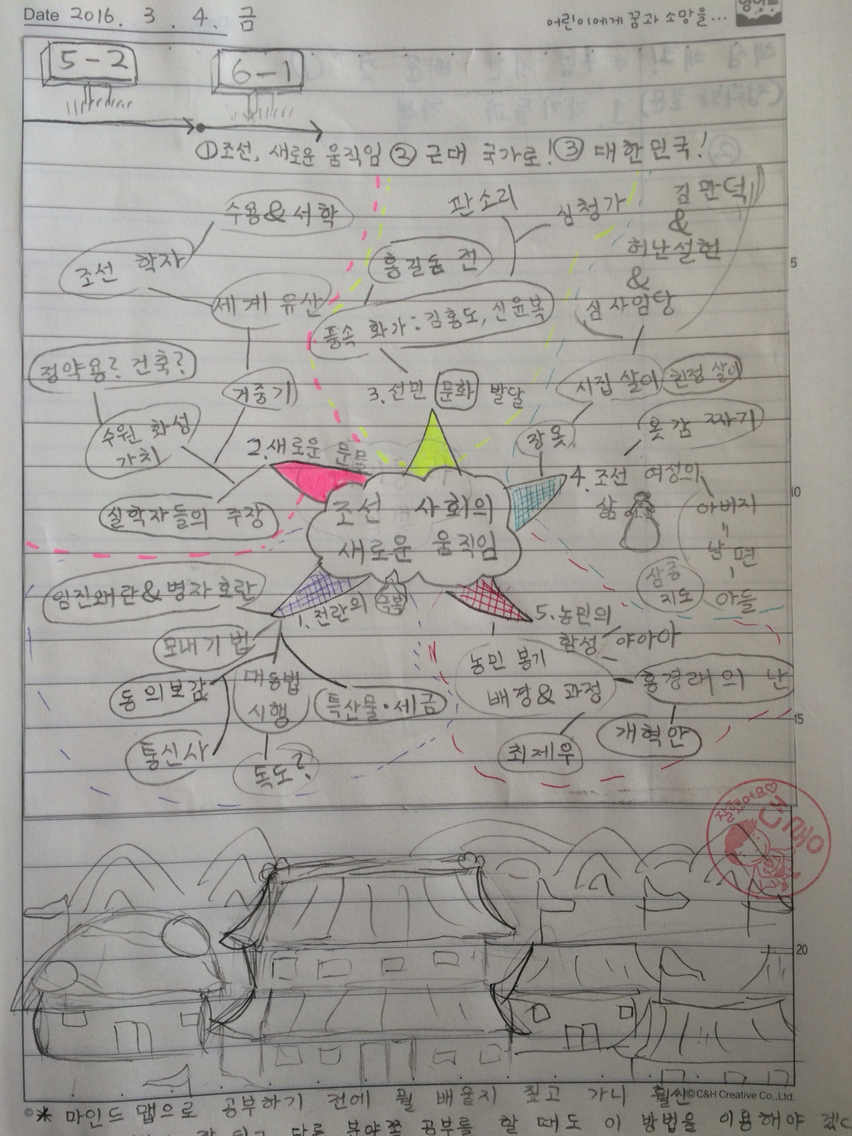 Date 2016. 3. 4. 금
어린이에게 꿈과 소망을...
5-2
6-1
①조선, 새로운 움직임 ② 근대 국가로! ③ 대한민국!
수용&서학
조선 학자
세계 유산
정약용? 건축?
거중기
수원 화성
가치
2.새로운 문물
실학자들의 주장
판소리
심청가
홍길동 전
풍속 화가:김홍도, 신윤복
3.서민 문화 발달
김만덕
&
허난설헌
&
심사임당
시집 살이
친정 살이
장옷
옷감 짜기
4.조선 여성의
삶
아버지
남편
아들
삼종
지도
조선 사회의
새로운 움직임
임진왜란&병자호란
1.전란의 극복
모내기법
동의보감
대동법
시행
특산물·세금
통신사
독도?
5.농민의
함성 야아아
농민 봉기
배경&과정
홍경래의 난
개혁안
최제우
참잘했어요♡
5
10
15
20
©C&H Creative Co.,Ltd.
* 마인드 맵으로 공부하기 전에 뭘 배울지 짚고 가니 훨씬
다른 분야쪽 공부를 할 때도 이 방법을 이용해야 겠다